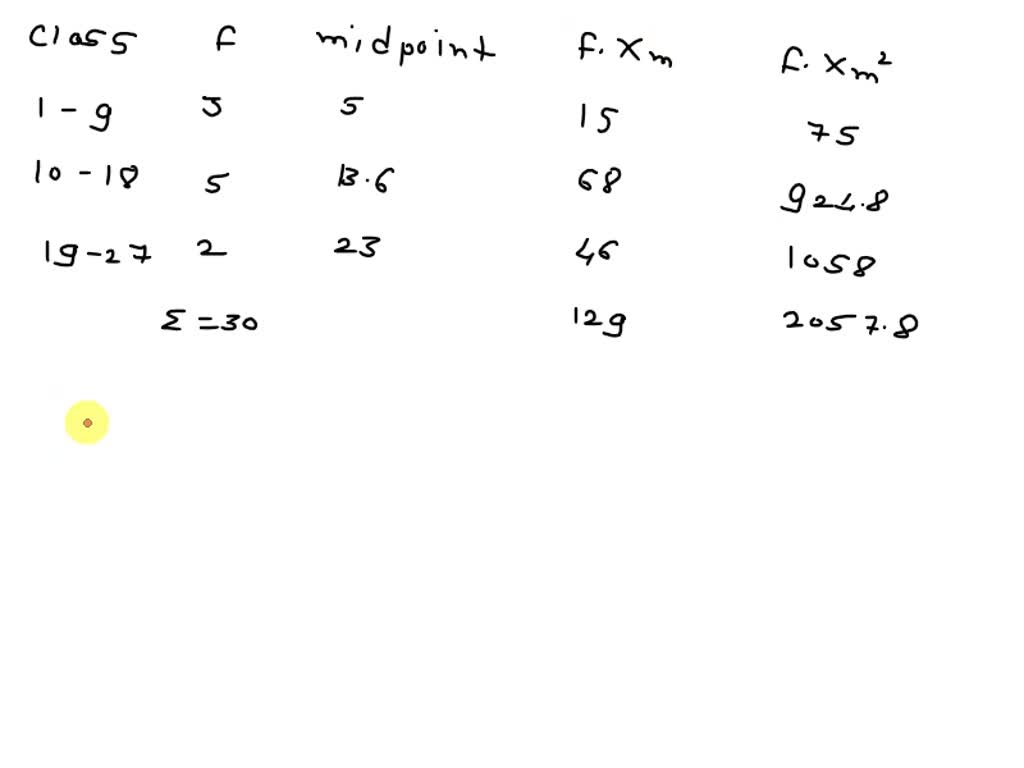 Class f midpoint f. Xm f. Xm²
1 - 9 3 5 15 75
10 - 18 5 13.6 68 924.8
19 - 27 2 23 46 1058
Σ = 30 129 2057.8